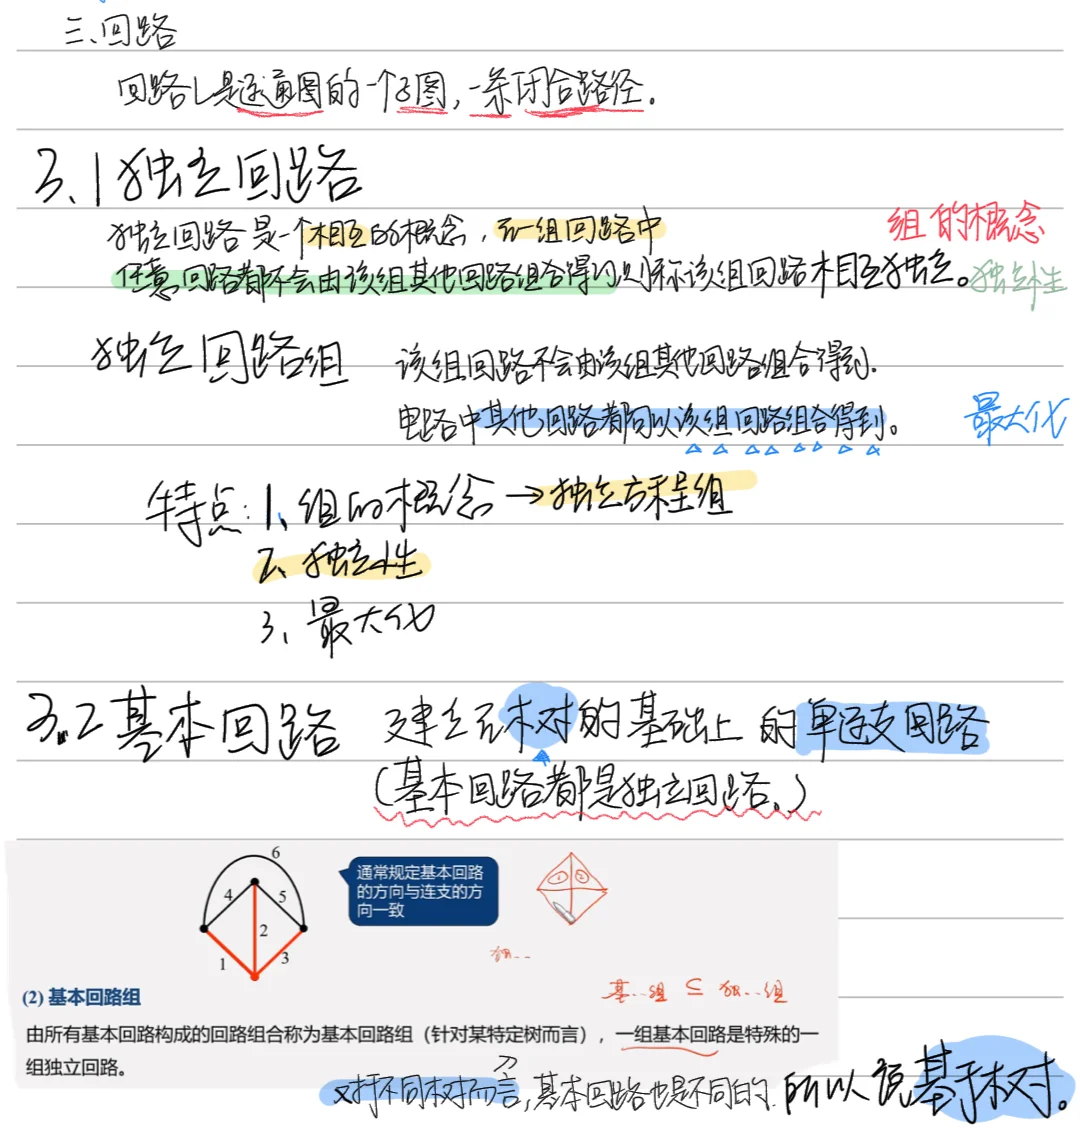 三、回路
回路L是连通图的一个子图，一条闭合路径。
3.1 独立回路
组的概念
独立回路是一个相互的概念，在一组回路中
任意回路都不会由该组其他回路组合得到，则称该组回路相互独立。独立性
独立回路组 该组回路不会由该组其他回路组合得到.
电路中其他回路都可以该组回路组合得到。 最大化
特点：1、组的概念→独立方程组
2、独立性
3、最大化
3.2 基本回路 建立在树的基础上的单连支回路
(基本回路都是独立回路。)
6
4 5
2
1 3
通常规定基本回路
的方向与连支的方
向一致
① ②
独..
基..组 ⊆ 独..组
(2) 基本回路组
由所有基本回路构成的回路组合称为基本回路组（针对某特定树而言），一组基本回路是特殊的一
组独立回路。
对于不同树而言,基本回路也是不同的. 所以说基于树。